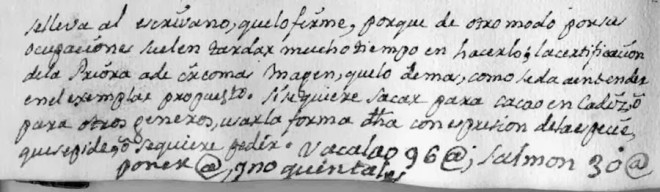 se lleva al escrivano, que lo firme, porque de otro modo por sus
ocupaciones suelen tardar mucho tiempo en hacerlo; la certificacion
de la Priora a de ir con mas Magen, que lo demas, como se da a entender
en el exemplar propuesto. Si se quiere sacar para cacao en
para otros generos, usar la forma dha con espresion de la especie,
que se pide, o se quiere pedir. Vacalao 96 @; Salmon 30 @
poner @, y no quintales